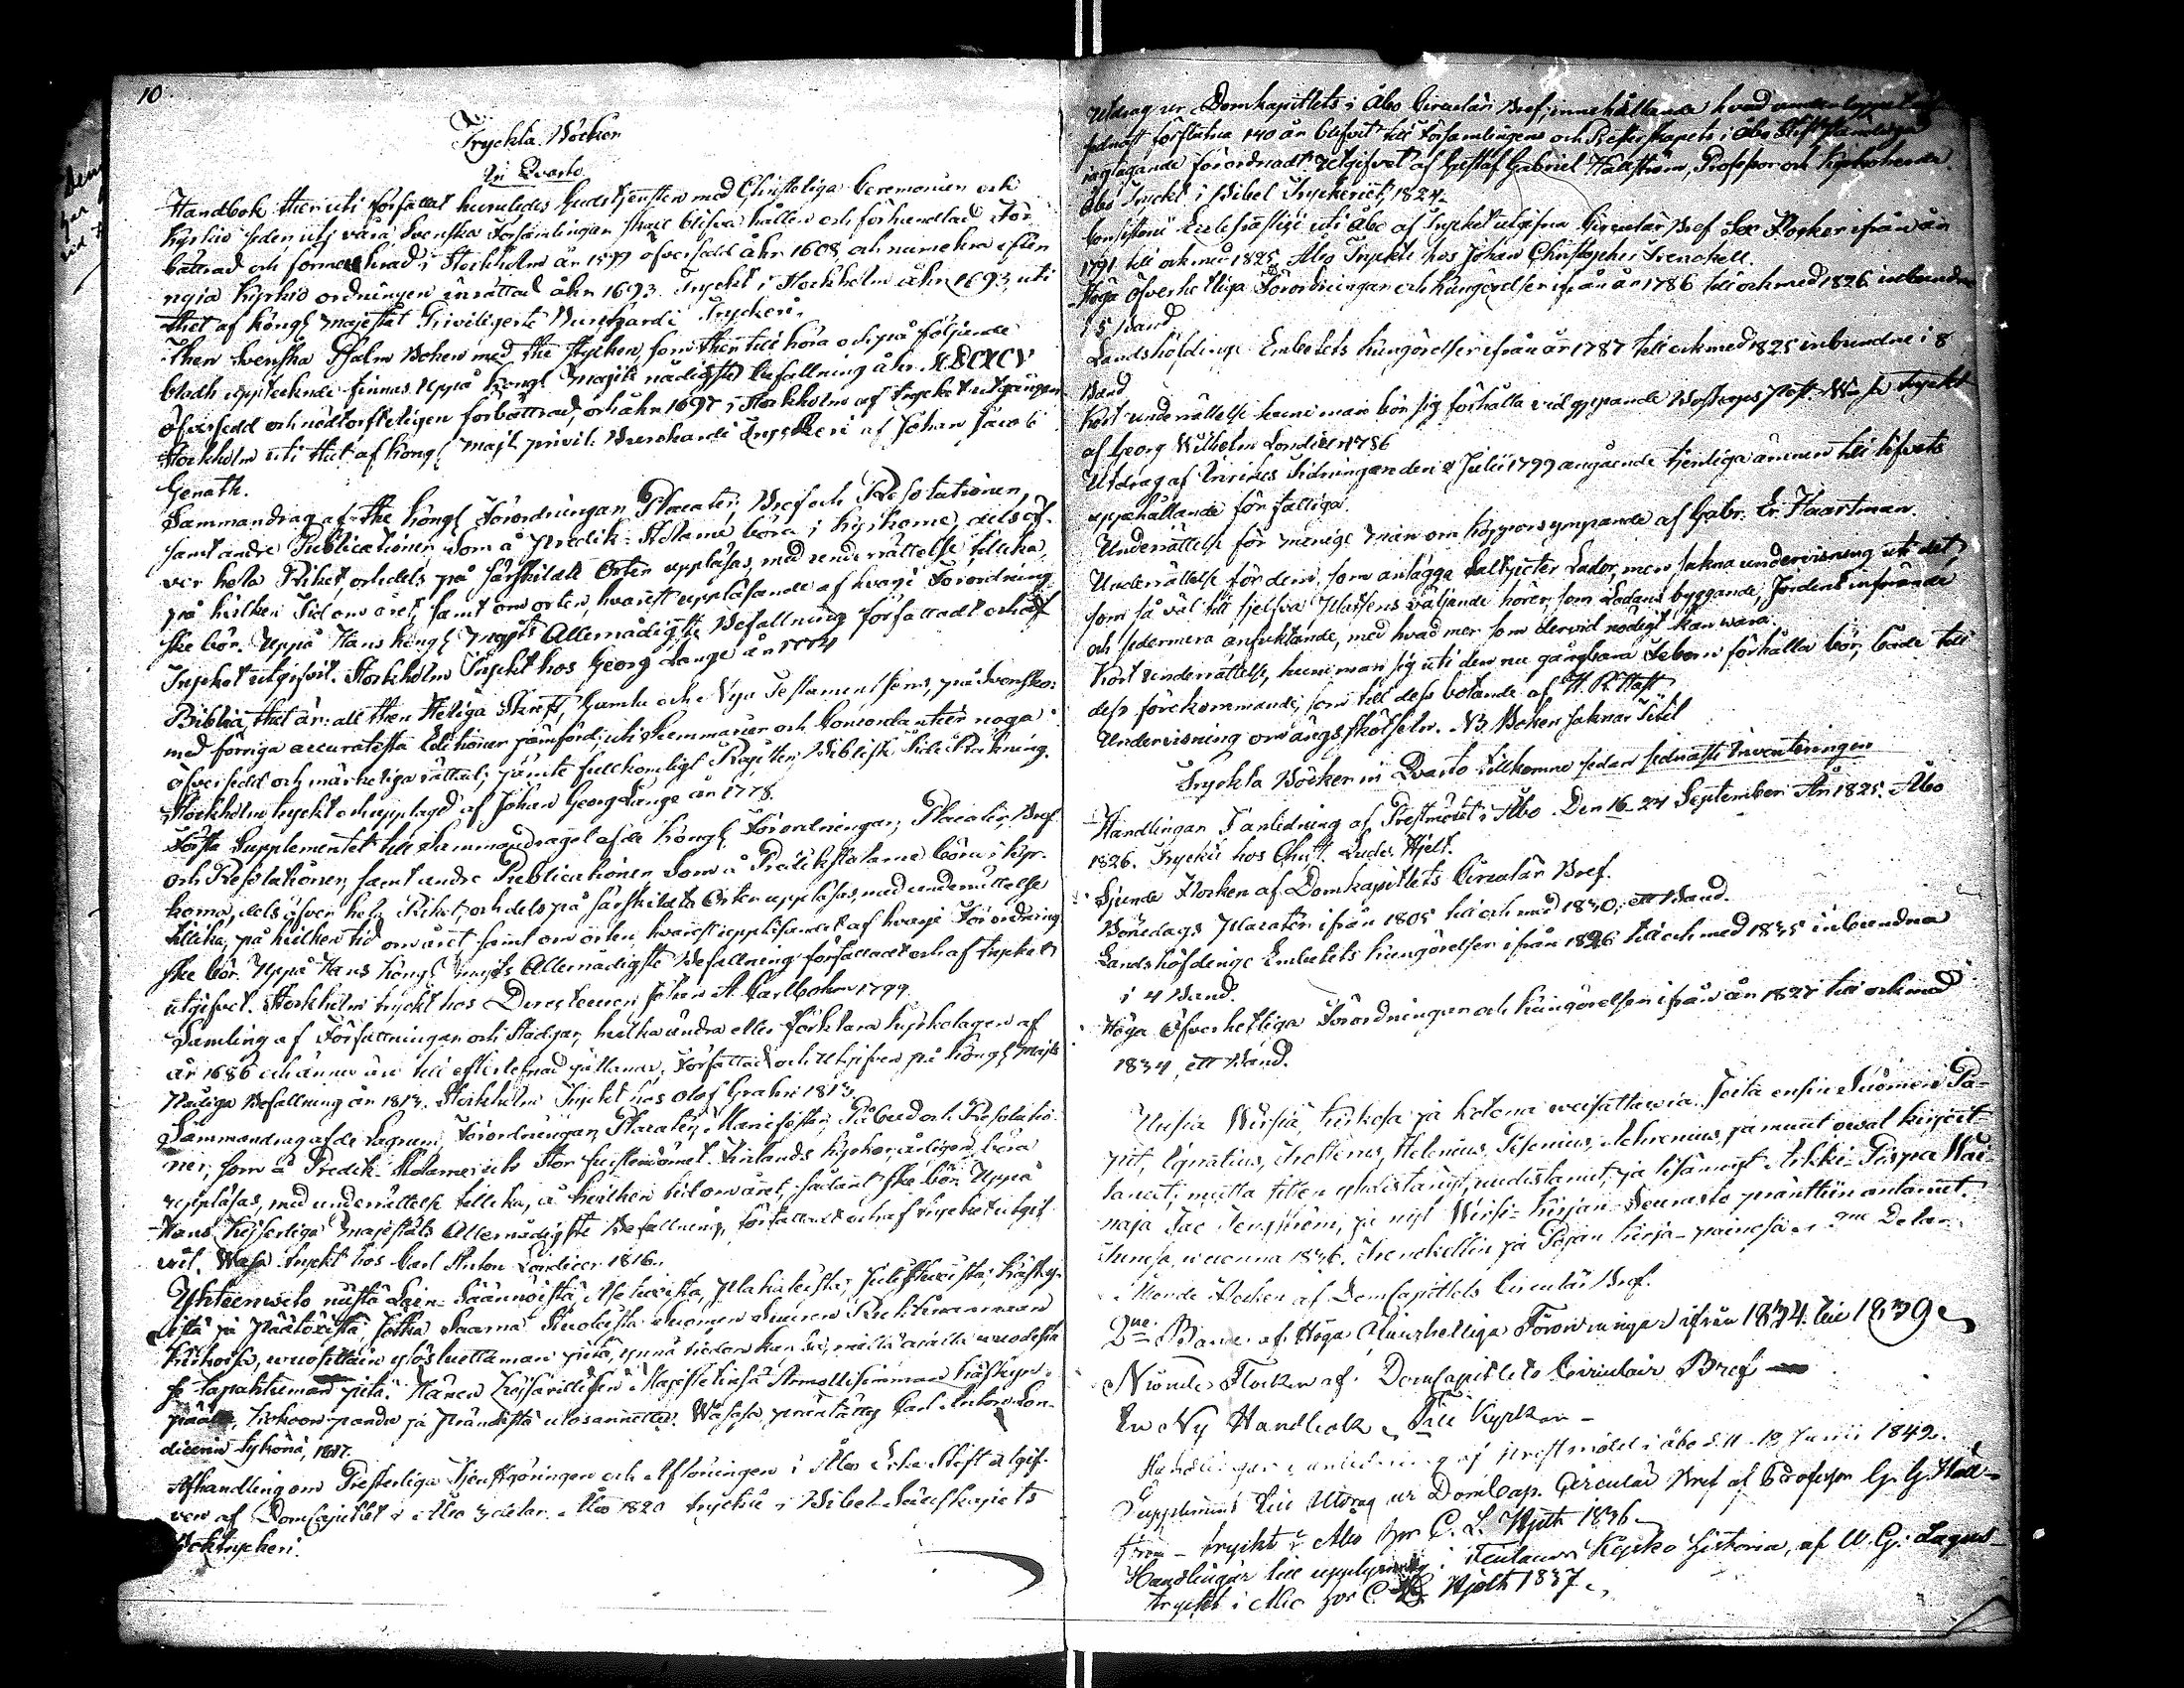 10
Tryckta Böcker
In Qvarto
Handbok ther uti författat huruledes Gudstjensten med Christeliga Ceremonier och
Kyrkio seder uti våra Svenska Församlingar skall blifva hållen och förhandlad För-
bättrad och förmerhrad i Stockholm år 1599 öfversedd åhr 1608 och nu mehra efter
nyia Kyrkio ordningen inrättad åhr 1693. Tryckt i Stockholm åhr 1693, uti
thet af Kongl Majestät Priviligerte Burchardi Tryckeri.
Then Svenska Psalm Boken med the stycken, som ther till höra och på följande
bladh uptecknde finnas Uppå Kongl Majits nådigste befallning åhr MDCXCV
öfversedd och nödtorfteligen förbättrad, och åhr 1697 i Stockholm af trycket utgången
Stockholm uti thet af Kongl Majt privil: Burchardi Tryckeri af Johan Jacob
Genath.
Sammandrag af the Kongl Förordningar Placater, Bref och Resolutioner,
samt andre Publicationer, Som å Predik-Stolarne böra i Kyrkorne, dels öf-
ver hela Riket, och dels på särskildte Orter uppläsas, med underrättelse tillika,
på hvilken Tid om året, samt om orten hvarest uppläsande af hvarje Förordning
ske bör. Uppå Hans Kongl Majts Allernådigste Befallning författadt och af
Trycket utgifvit. Stockholm Tryckt hos Georg Lange år 1774
Biblia, thet är: all then Heliga Skrift, Gamla och Nya Testamentsens, på Svensko:
med förriga accurateste Editioner jämförd, uti Summarier och Concordantier noga
öfversedd och märkeliga rättad; jämte fullkomligt Register, Biblisk Tide-Räkning.
Stockholm tryckt och upplagd af Johan Georg Lange år 1778.
Första Supplementet till Sammandraget af de Kongl. Förordningar, Placater, Bref
och Resolutioner, samt andre Publicationer Som å Predikstolarne böra i Kyr-
korna, dels öfver hela Riket, och dels på särskildte Orter uppläsas, med underrättelse
tillika, på hvilken tid om året samt om orten, hvarest uppläsandet af hvarje Förordning
ske bör. Uppå Hans Kongl Majts Allernådigste Befallning författadt och af trycket
utgifvet. Stockholm tryckt hos Directeuren Johan A. Carlbohm 1799.
Samling af Författningar och Stadgar, hvilka ändra eller förklara Kyrkolagen af
år 1686 och ännu äro till efterlefnad gällande, Författad och Utgifven på Kongl Majts
Nådiga Befallning år 1813. Stockholm Tryckt hos Olof Grahn 1813.
Sammandrag af de Lagrum, Förordningar, Placater, Manifester, Påbud och Resolutio-
ner, som å Predik-Stolarne uti Stor furstendömet Finlands Kyrkor, årligen böra
uppläsas, med underrättelse tillika, å hvilken tid om året, sådant ske bör. Uppå
Hans Kejserliga Majestäts Allernådigste Befallning, författadt och af trycket utgif-
vit. Wasa tryckt hos Carl Anton Londicer 1816.
Yhteenweto niistä Lain-Säännöistä Asetuxista, Plakateista, Julistuxista, Käsky-
istä ja Päätöxistä, Jotka Saarna Stuoleista Suomen Suuren Ruhtinanmaan
Kirkoisa, wuosittain ylösluettaman pitä, ynnä tiedon kansa, millä ajalla wuodesta
se tapahtuman pitä. Hänen Keisarillisen Majestetinsä Armollisimman Käskyn
päälle, kokoon pandu ja Prändistä ulosannettu. Wasasa präntätty Carl Anton Lon-
dicerin tykönä, 1817.
Afhandling om Presterliga Tjenstgöringen och Aflöningen i Åbo Erke Stift utgif-
ven af DomCapitlet i Åbo 3 delar. Åbo 1820 tryckt i Bibel Sällskapets
Boktryckeri.
Utdrag ur Domkapitlets i Åbo Circulär Bref, innehållande hvad under loppet af
sednast förflutna 140 år blifvit till Församlingens och Presterskapets i Åbo Stift ständiga
iagtagande förordnadt. Utgifvet af Gustaf Gabriel Hällström, Professor och Kyrkoherde.
Åbo Tryckt i Bibel Tryckeriet, 1824.
Consistorii Ecclesiastici uti Åbo af Trycket utgifna Circulär Bref Sex Flockar ifrån år
1791 till och med 1825. Åbo Tryckte hos Johan Christopher Frenckell.
Höga Öfverhetliga Förordningar och Kungörelser ifrån år 1786 till och med 1826 inbundne
i 5 Band
Landshöfdinge Embetets Kungörelser ifrån år 1787 till och med 1825 inbundne i 8
Band
Kort underrättelse huru man bör sig förhålla vid Wasa tryckt
af Georg Wilhelm Londicer 1786
Utdrag af Inrikes Tidningar den 8 Julii 1799 angående tjenliga ämnen till lifvets
uppehållande för fattiga.
Underrättelse för menige Man om Koppors ympande af Gabr. Er. Haartman.
Underrättelse för dem, som anlägga Salpeter Lador, men sakna undervisning uti det
som så väl till sjelfva Platsens väljande hörer, som Ladans byggande, Jordens införande
och sedermera anfuktande, med hvad mer som dervid nödigt kan wara.
Kort Underrättelse, huru man sig uti den nu gångbara Febern förhålla bör, både till
dess förekommande, som till dess botande af H. R. Hast
Undervisning om ängs skötseln. NB. Boken saknar Titel
Tryckta Böcker in Qvarto tillkomne sedan sednaste Inventeringen
Handlingar I anledning af Prestmötet i Åbo Den 16-24 September År 1825. Åbo
1826. Tryckte hos Christ. Ludv. Hjelt.
Sjunde Flocken af Domkapitlets Circulär Bref.
Bönedags Placater ifrån 1805 till och med 1830, ett Band.
Landshöfdinge Embetets Kungörelser ifrån 1826 till och med 1835 inbundna
i 4 Band.
Höga Öfverhetliga Förordningar och Kungörelser ifrån år 1827 till och med
1834, ett Band.
Uusia Wirsiä, Kirkosa ja kotona weisattawia. Joita ensin Suomen Pa-
pit, Ignatius, Helenius, Achrenius, ja muut owat kirjoit-
tanut; mutta sitten uudistanut, ja Arkki-Pispa Wai-
naja Jac Tengström, ja nyt Wirsi-Kirjan Seurasto pränttiin andanut.
Turusa, wuonna 1836. Frenckellin ja Pojan kirja-painosa. Delar
Åttonde Flocken af DomCapitlets Circulär Bref.
2ne Bande af Höga Öfverhetliga Förordningar ifrån 1834 till 1839
Nionde Flocken af DomCapitlets Circulair Bref
En Ny Handbok Till Kyrkan
Handlingar i anledning af Prestmötet i Åbo d. 11-18 Junii 1842.
Supplement till Utdrag ur DomCap. Circulär Bref af Professor G. G. Häll-
ström - tryckt i Åbo hos C. L. Hjelt 1836
Handlingar till upplysning i Finlands Kyrko historia, af W. G. Lagus
tryckt i Åbo hos C. L. Hjelt 1837